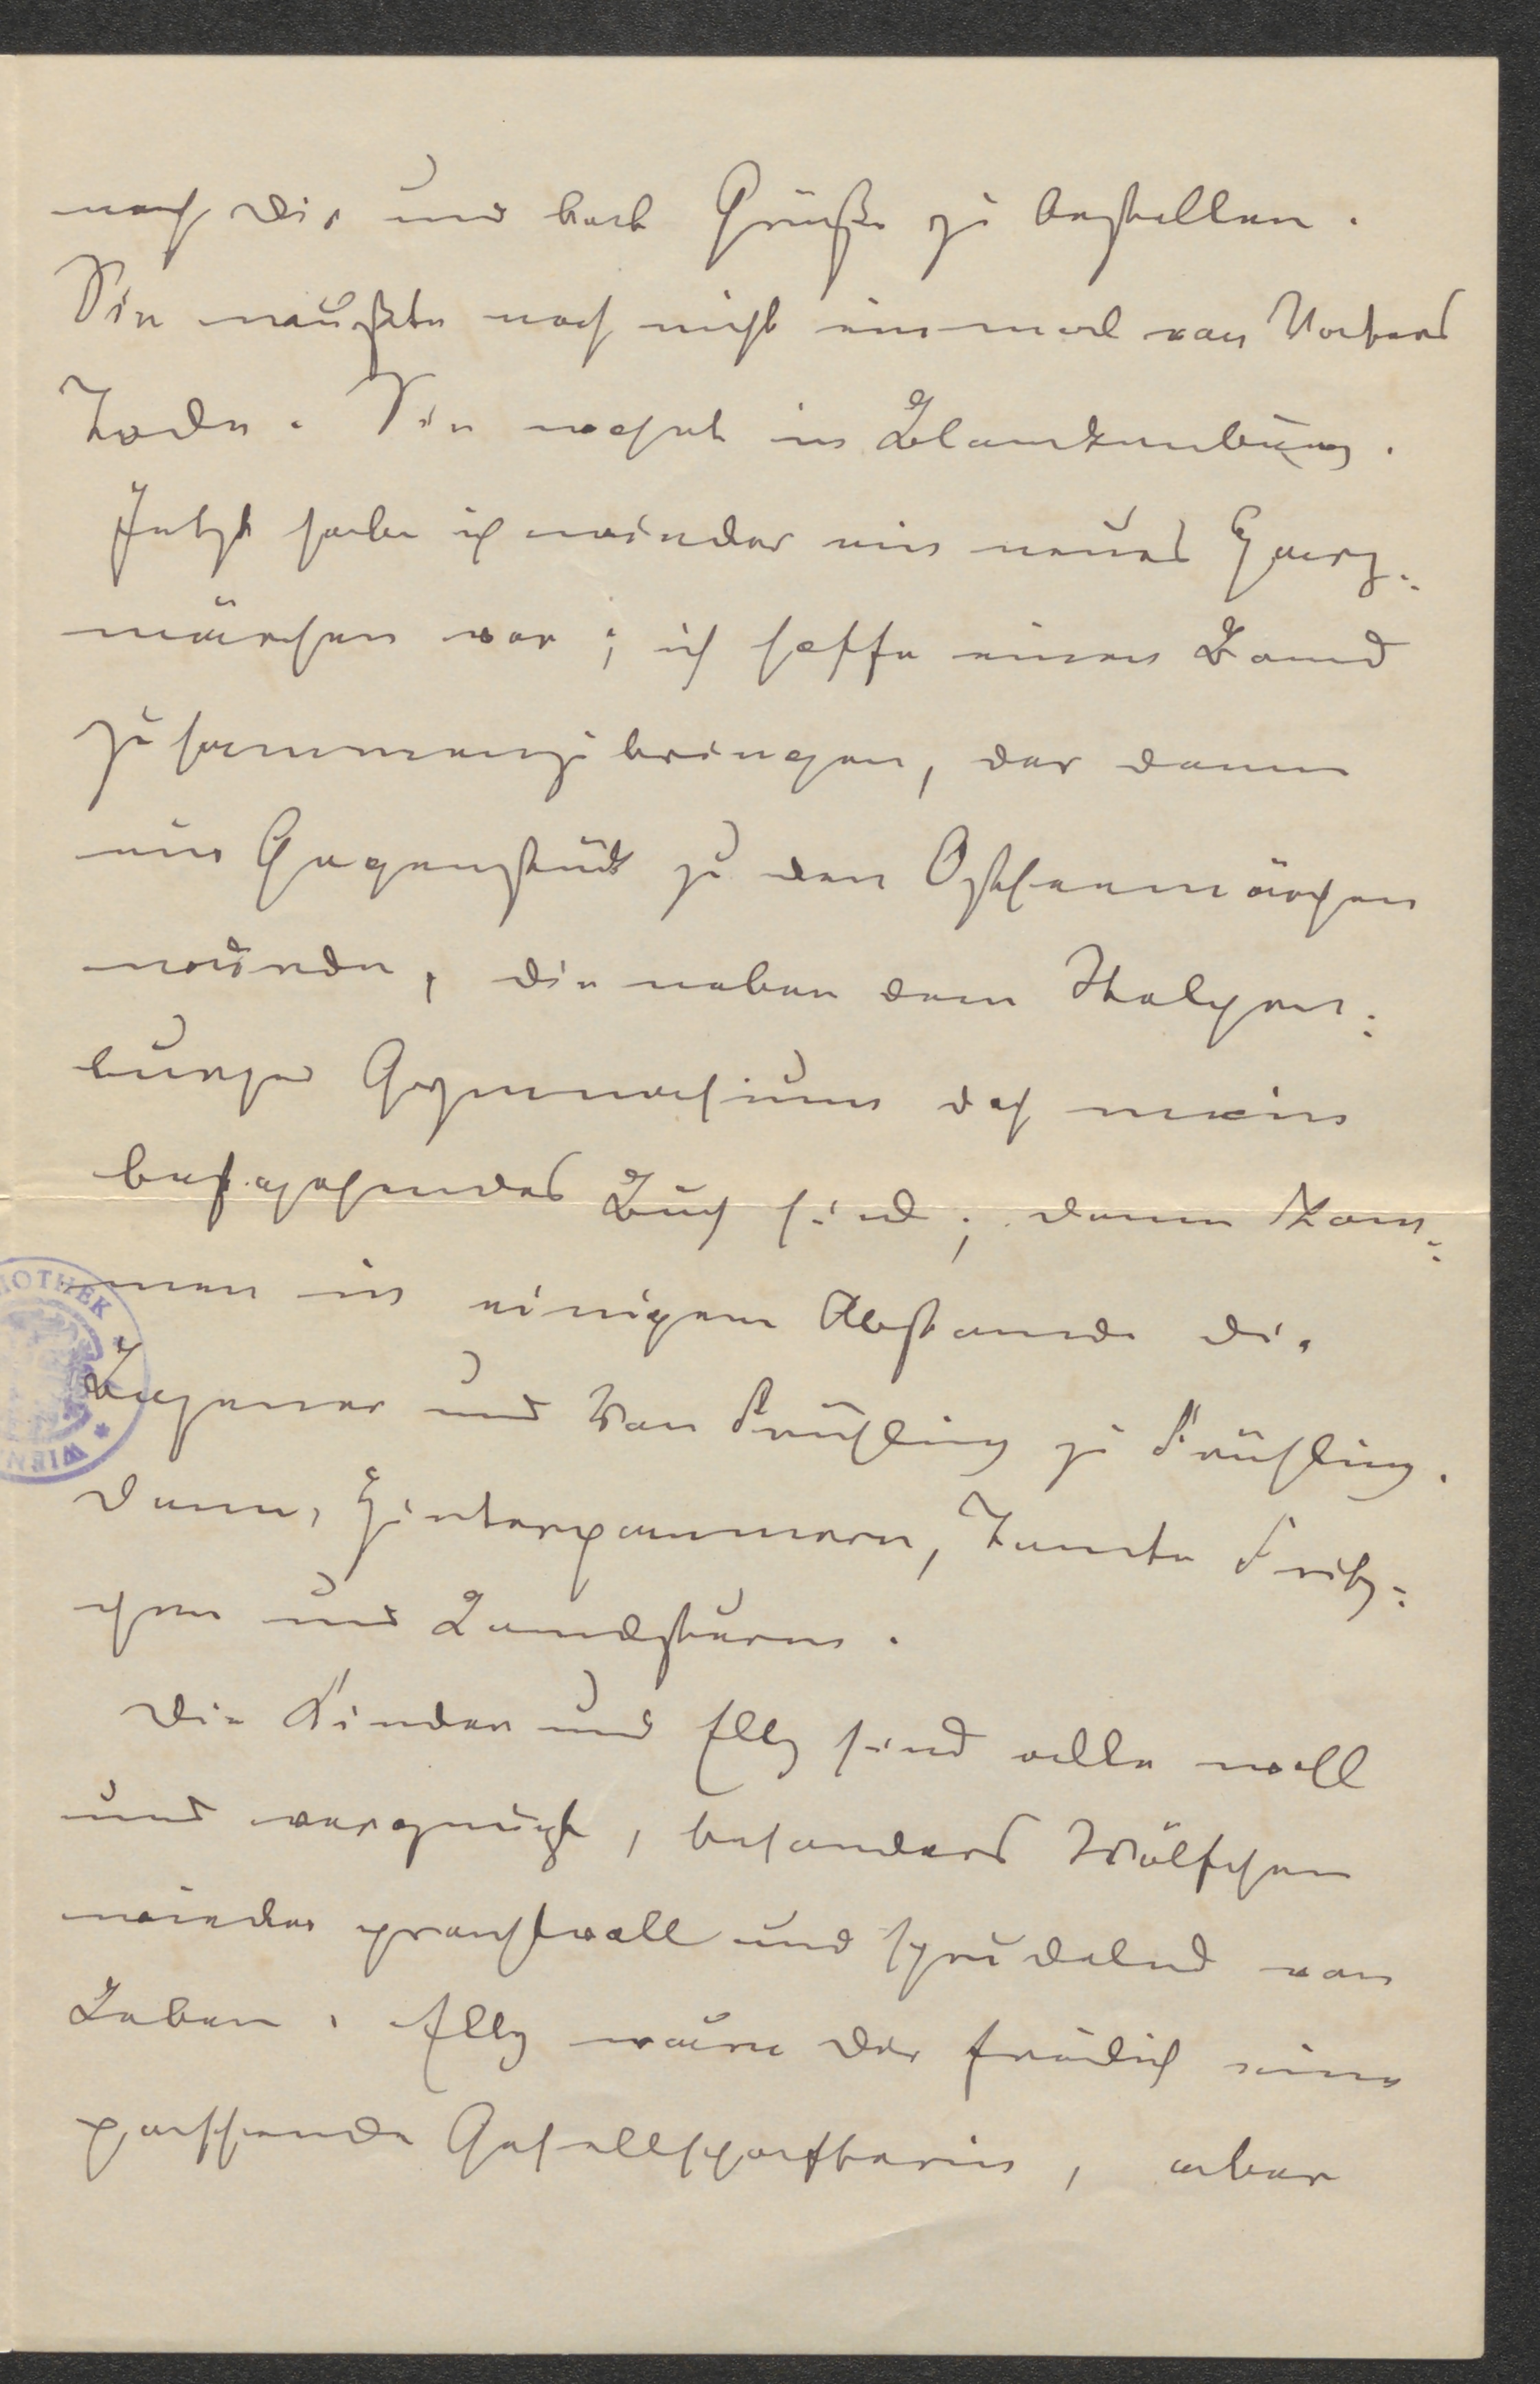 nach Dir und bat Grüße zu bestellen.
Sie wußte noch nicht einmal von Vaters
Tode. Sie wohnt in Blankenburg.
Jetzt habe ich wieder ein neues Harz-
märchen vor; ich hoffe einen Band
zusammenzubringen, der dann
ein Gegenstück zu den Ostseemärchen
würde, die neben dem Stolpen-
burger Gymnasium doch mein
bestgehendes Buch sind; dann kom-
men in einigem Abstande die
Zigeuner und Von Frühling zu Frühling.
Dann, Hinterpommern, Tante Fritz-
chen und Landsturm.
Die Kinder und Elly sind alle wohl
und vergnügt, besonders Wölfchen
wieder prachtvoll und sprudelnd von
Leben. Elly wäre Dir freilich eine
passende Gesellschafterin, aber
IOTHEK
WIEN